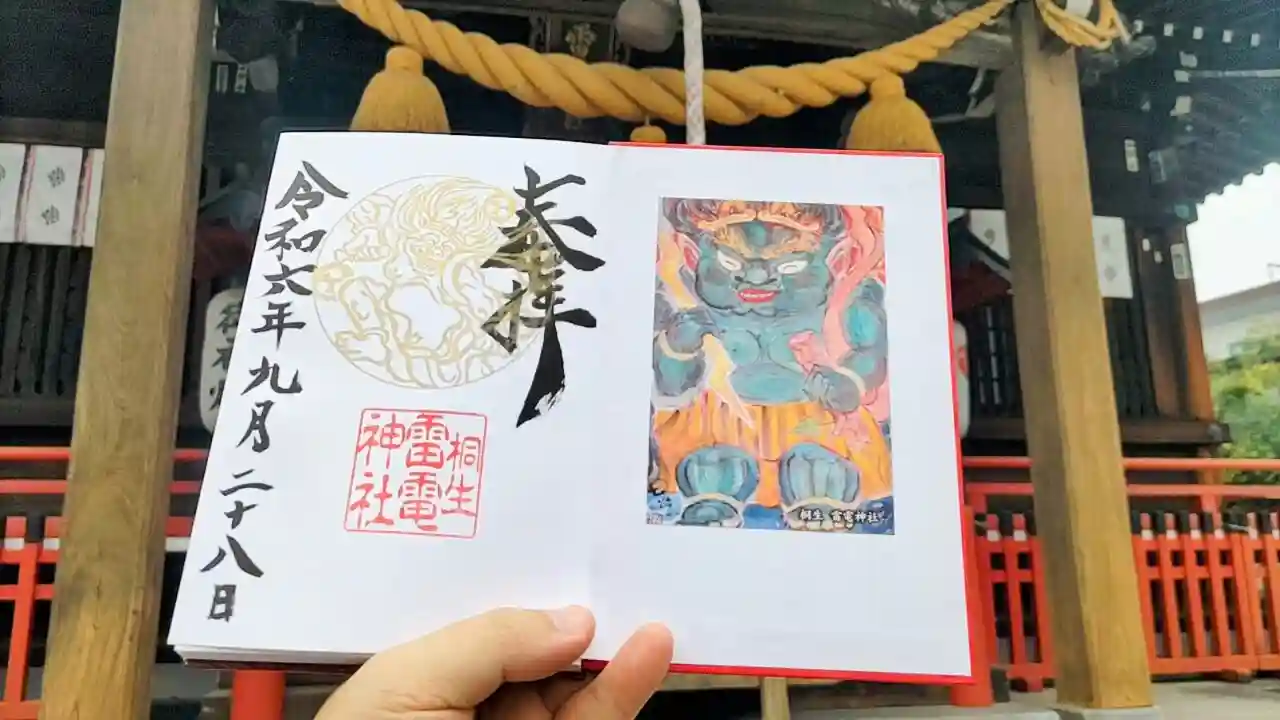 奉拝
桐生
雷電
神社
令和六年九月二十八日
桐生 雷電神社